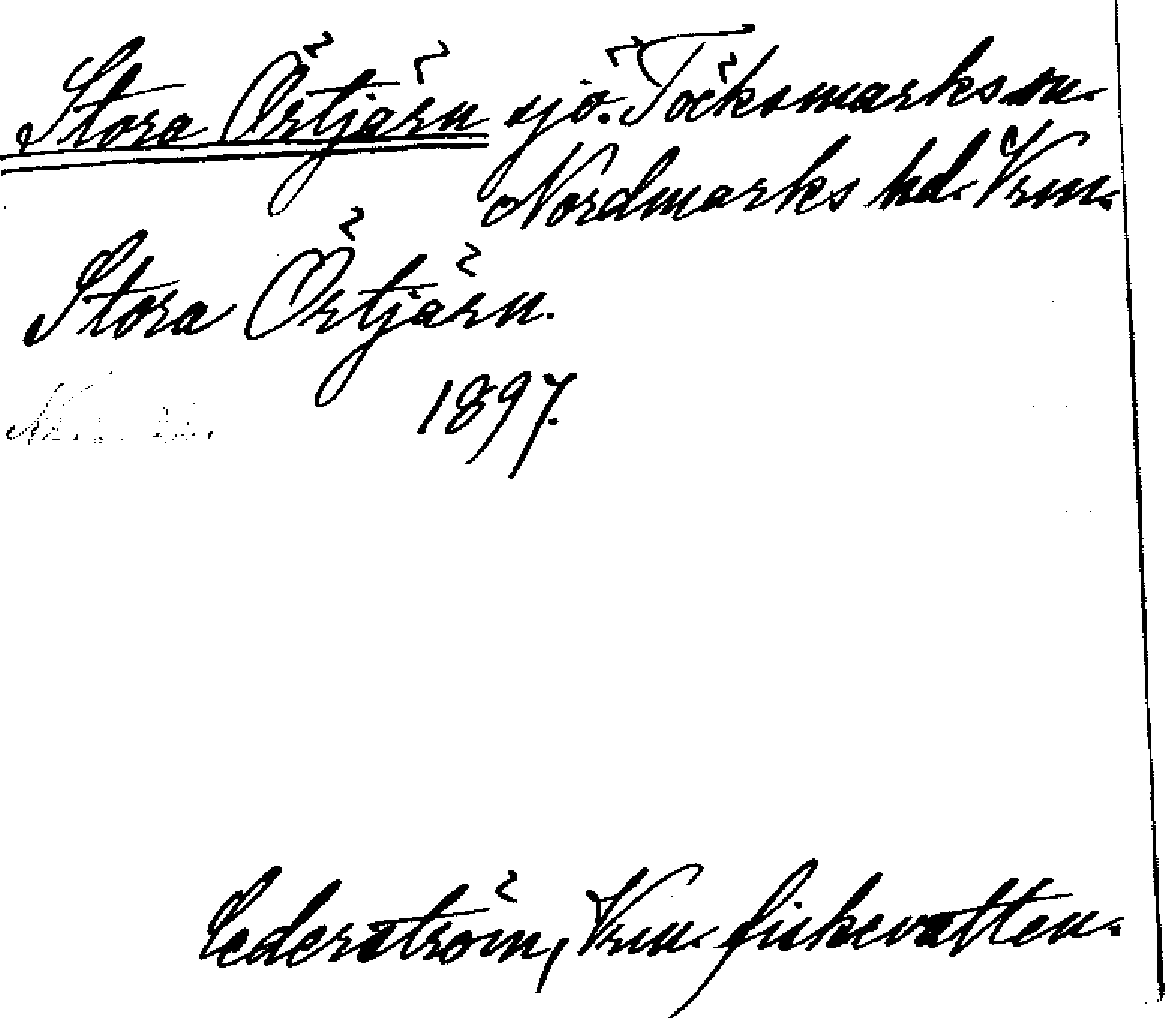 Stora Örtjärn sjö. Töcksmarks sn.
Nordmarks hd. Vrm.
Stora Örtjärn.
1897.
Cederström, Vrm. fiskevatten.